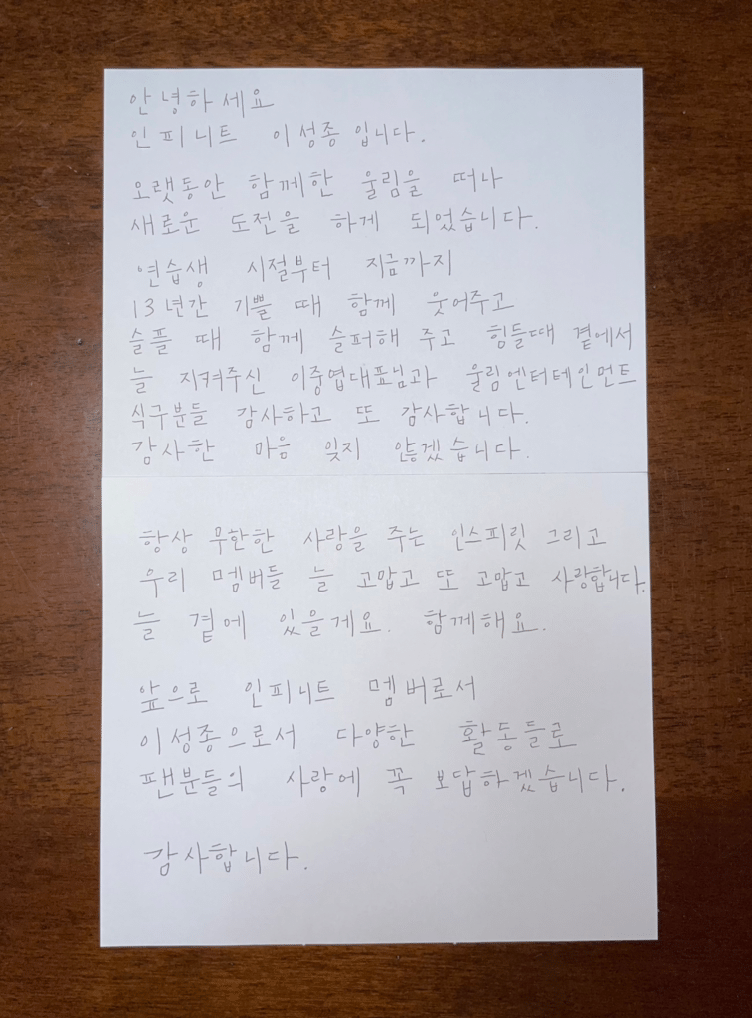 안녕하세요
인피니트 이성종 입니다.
오랫동안 함께한 울림을 떠나
새로운 도전을 하게 되었습니다.
연습생 시절부터 지금까지
13년간 기쁠 때 함께 웃어주고
슬플 때 함께 슬퍼해 주고 힘들때 곁에서
늘 지켜주신 이중엽대표님과 울림엔터테인먼트
식구분들 감사하고 또 감사합니다.
감사한 마음 잊지 않겠습니다.
항상 무한한 사랑을 주는 인스피릿 그리고
우리 멤버들 늘 고맙고 또 고맙고 사랑합니다.
늘 곁에 있을게요. 함께해요.
앞으로 인피니트 멤버로서
이성종으로서 다양한 활동들로
팬분들의 사랑에 꼭 보답하겠습니다.
감사합니다.